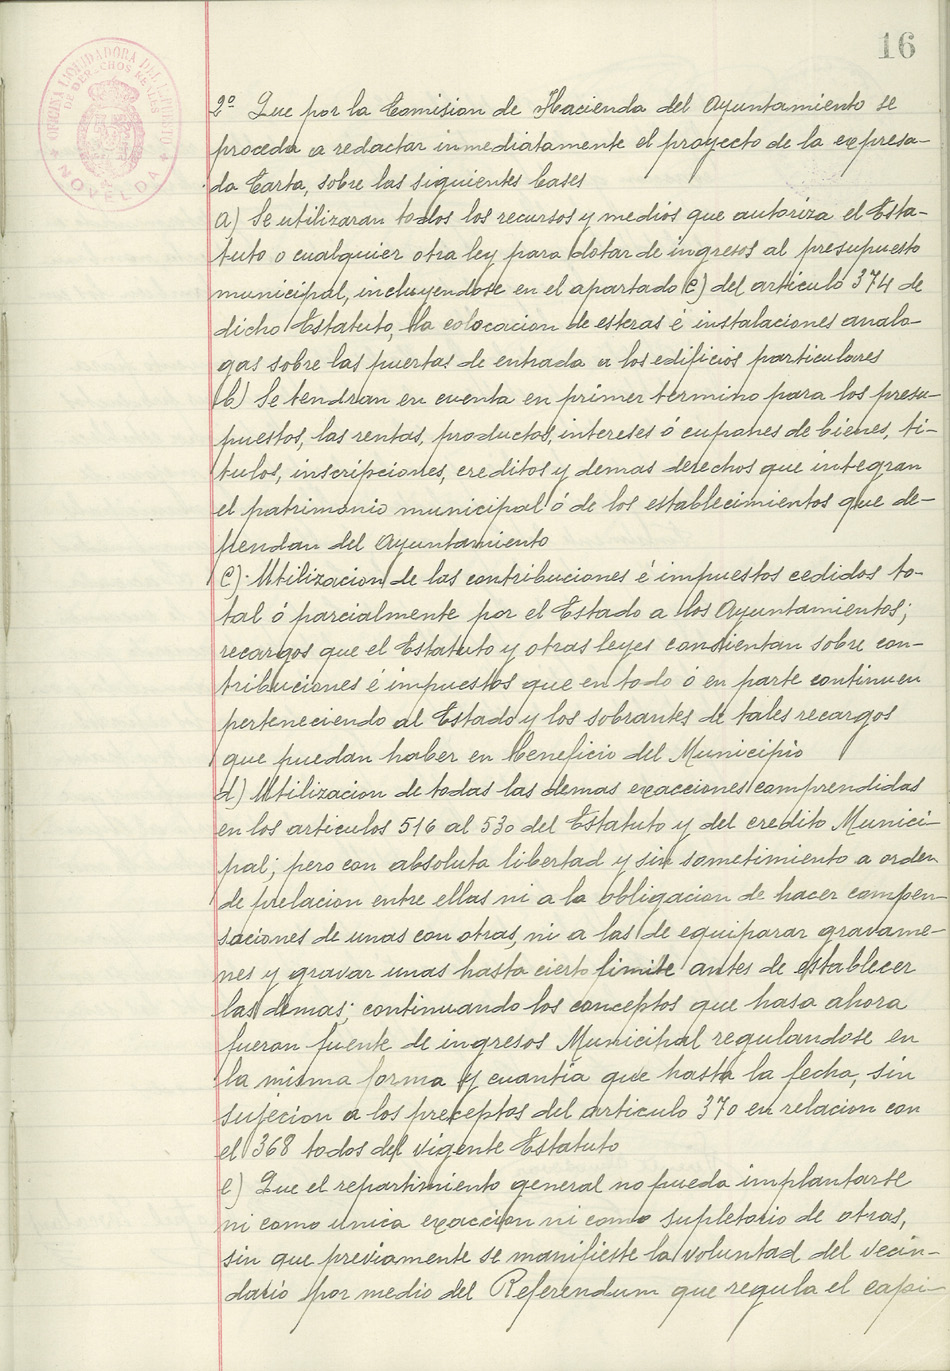 16
OFICINA LIQUIDADORA DEL IMPUESTO
DE DERECHOS REALES
NOVELDA
2º Que por la Comision de Hacienda del Ayuntamiento se
proceda a redactar inmediatamente el proyecto de la expresa-
da Carta, sobre las siguientes bases
a) Se utilizaran todos los recursos y medios que autoriza el Esta-
tuto o cualquier otra ley para dotar de ingresos al presupuesto
municipal, incluyendose en el apartado C) del articulo 374 de
dicho Estatuto, la colocacion de esteras é instalaciones analo-
gas sobre las puertas de entrada a los edificios particulares
b) Se tendran en cuenta en primer termino para los presu-
puestos, las rentas, productos, intereses ó cupones de bienes, ti-
tulos, inscripciones, creditos y demas derechos que integran
el patrimonio municipal ó de los establecimientos que de-
pendan del Ayuntamiento
C) Utilizacion de las contribuciones é impuestos cedidos to-
tal ó parcialmente por el Estado a los Ayuntamientos;
recargos que el Estatuto y otras leyes consientan sobre con-
tribuciones é impuestos que en todo ó en parte continuen
perteneciendo al Estado y los sobrantes de tales recargos
que puedan haber en beneficio del Municipio
d) Utilizacion de todas las demas exacciones comprendidas
en los articulos 516 al 530 del Estatuto y del credito Munici-
pal; pero con absoluta libertad y sin sometimiento a orden
de prelacion entre ellas ni a la obligacion de hacer compen-
saciones de unas con otras, ni a las de equiparar gravame-
nes y gravar unas hasta cierto limite antes de establecer
las demas; continuando los conceptos que hasa ahora
fueran fuente de ingresos Municipal regulandose en
la misma forma y cuantia que hasta la fecha, sin
sujecion a los preceptos del articulo 370 en relacion con
el 368 todos del vigente Estatuto
e) Que el repartimiento general no pueda implantarse
ni como unica exaccion ni como supletorio de otras,
sin que previamente se manifieste la voluntad del vecin-
dario por medio del Referendum que regula el capi-